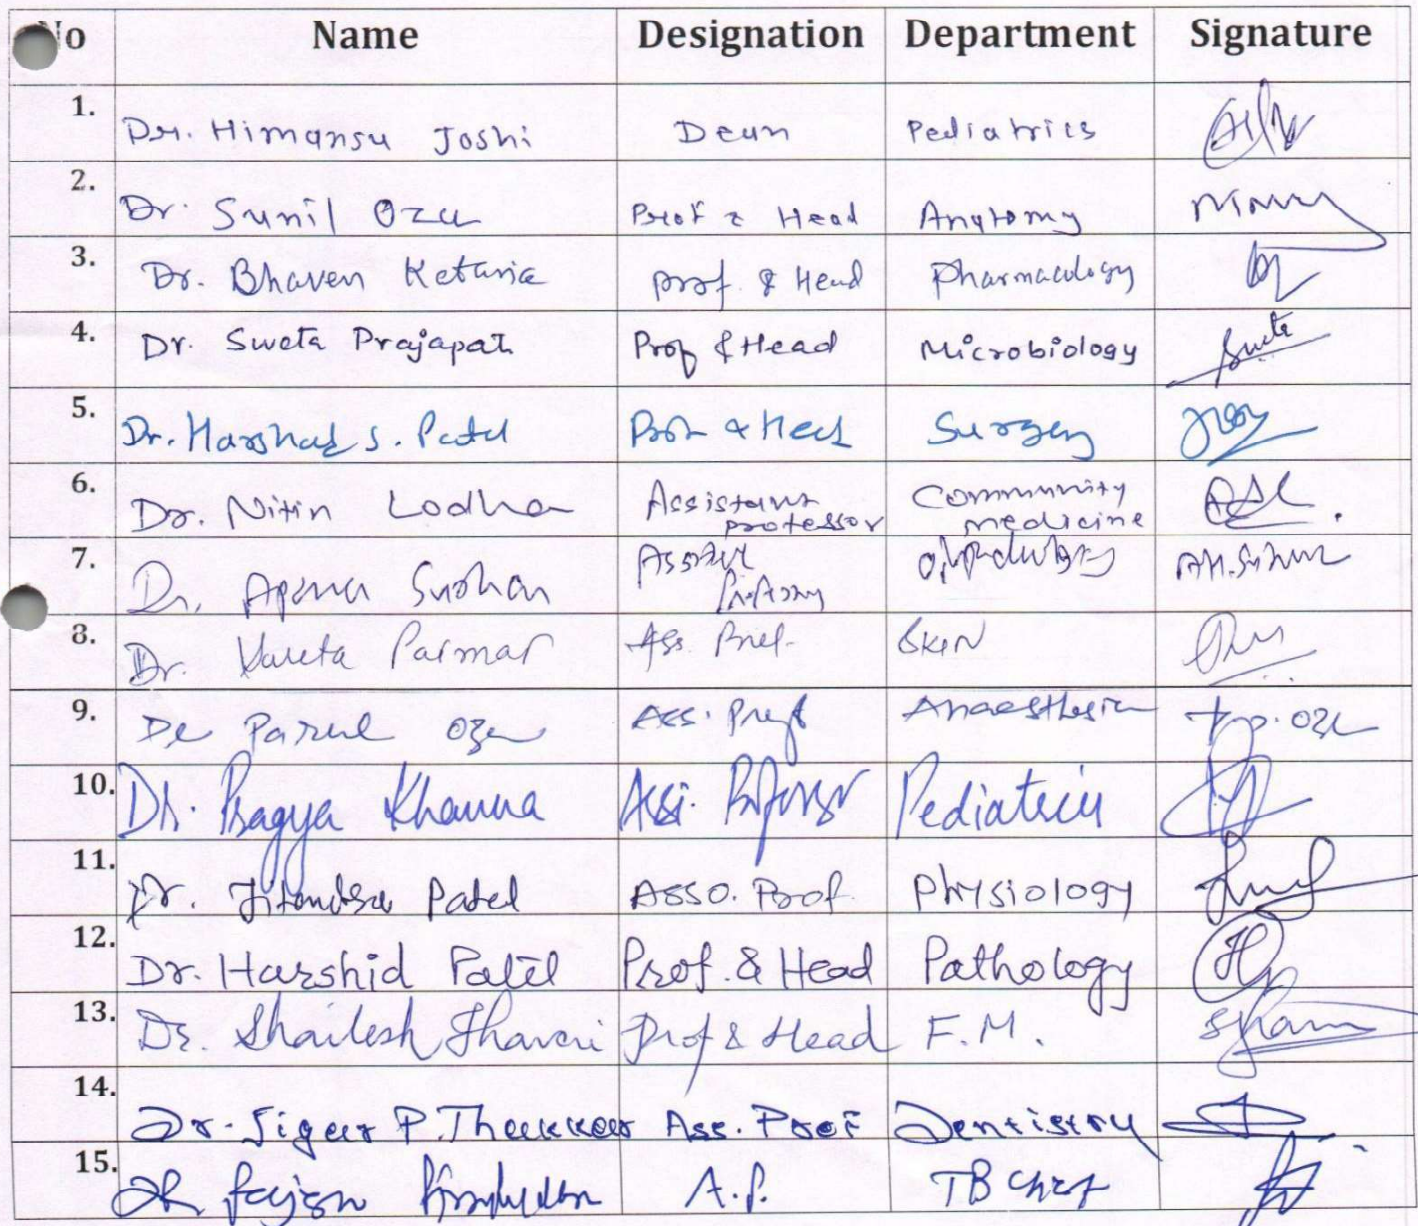 No Name Designation Department Signature
1. Dr. Himansu Joshi Dean Pediatrics
2. Dr. Sunil Oza Prof & Head Anatomy
3. Dr. Bhaven Kataria prof. & Head Pharmacology
4. Dr. Sweta Prajapati Prof & Head Microbiology Sweta
5. Dr. Harshad S. Patel Prof & Head Surgery
6. Dr. Nitin Lodha Assistant professor Community medicine
7. Dr.
8. Dr. Parmar Ass. Prof. SKIN
9. Dr Parul Oza Ass. Prof Anaesthesia P.P. Oza
10. Dr. Pragya Khanna Assi. Professor Pediatrics
11. Dr. Jitendra Patel Asso. Prof Physiology
12. Dr. Harshid Patel Prof. & Head Pathology
13. Dr. Shailesh Jhaveri Prof & Head F.M.
14. Dr. Jigar P. Thakkar Ass. Prof Dentistry
15. Dr A.P. TB Chest